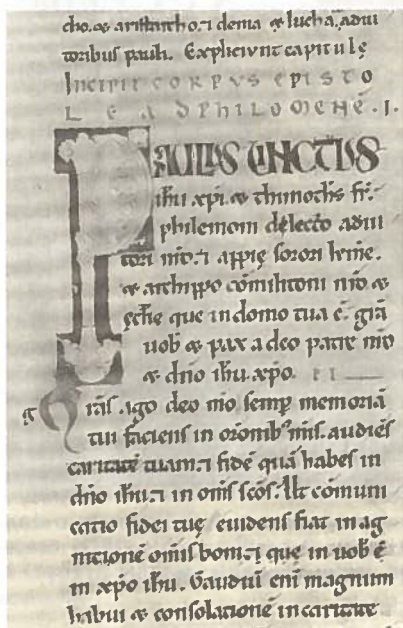 cho. & aristarcho. ⁊ dema & lucha. adiu
toribus pauli. Expliciunt capitule
Incipit corpus episto
le ad philomene. I.
PAULUS UINCTUS
ihu xpi. & thimotheus fr̄.
philemoni dilecto adiu
tori nro. ⁊ appie sorori krme.
& archippo cōmilitoni nro &
ęcclie que in domo tua ē. grā
uob & pax a deo patre nro
& dño ihu xpo. II
Grās. ago deo mo semp memoriā
tui faciens in orōnibꝰ mis. audiēs
caritatē tuam. ⁊ fidē quā habes in
dño ihu. ⁊ in om̄s scōs. Ut cōmuni
catio fidei tuę euidens fiat in ag
nitionē om̄is boni. ⁊ que in uob ē
in xpo ihu. Gaudiū eni magnum
habui & consolationē in caritate